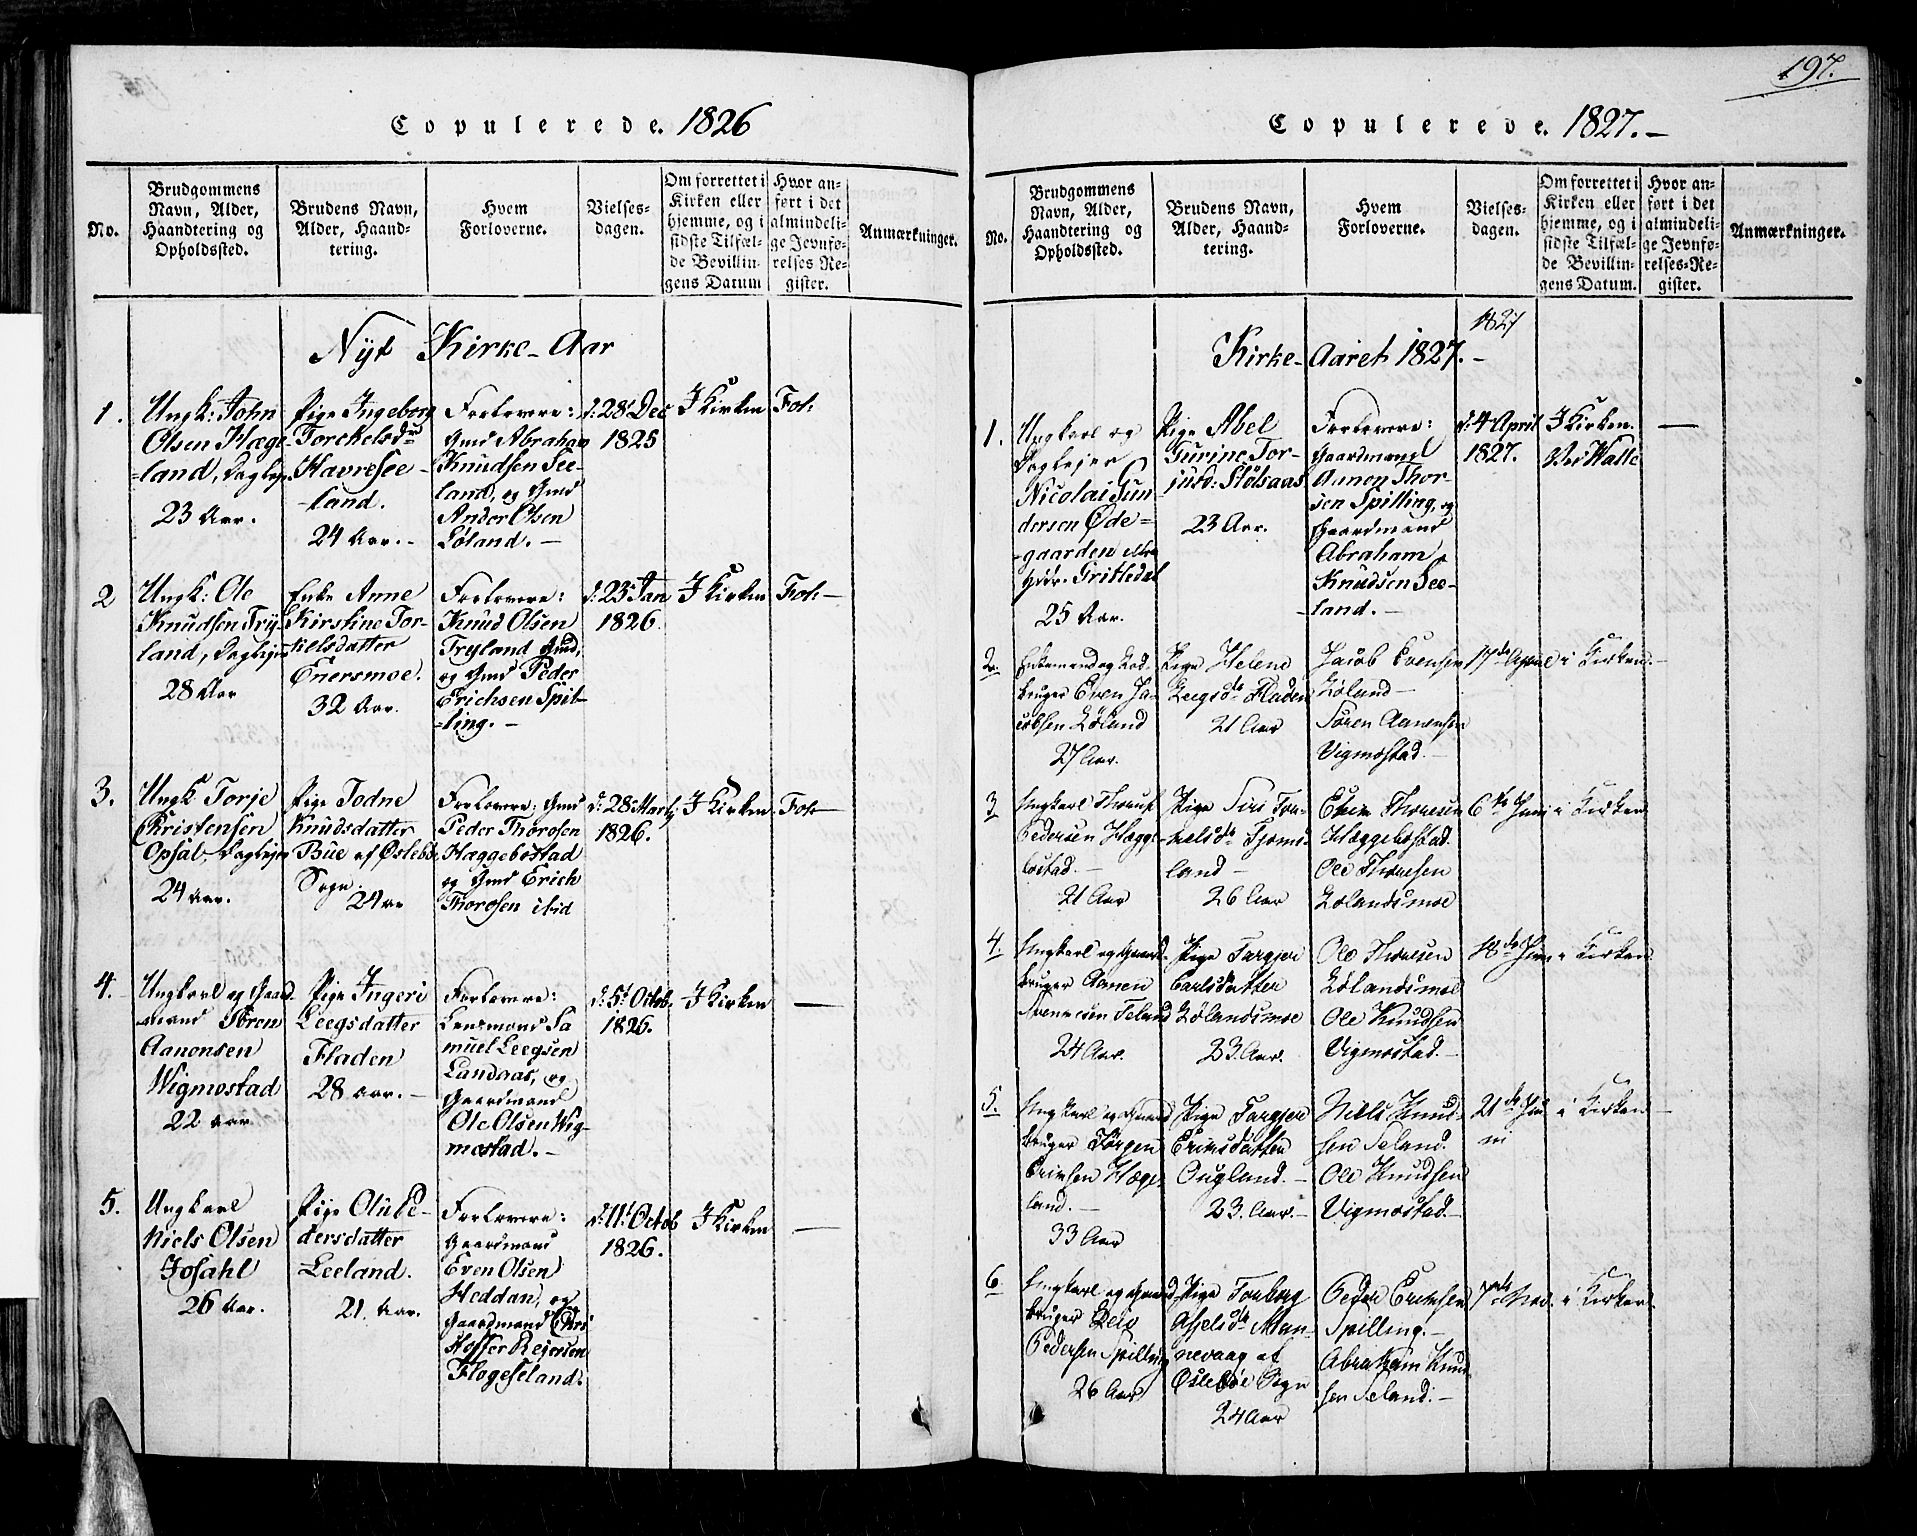 Copulerede. 1826
No.
Brudgommens
Navn, Alder,
Haandtering og
Opholdssted.
Brudens Navn,
Alder, Haand-
tering.
Hvem
Forloverne.
Vielses-
dagen.
Om forrettet i
Kirken eller
hjemme, og i
sidste Tilfæl-
de Bevillin-
gens Datum
Hvor an-
ført i det
almindeli-
ge Jevnfø-
relses Re-
gister.
Anmærkninger.
Nyt Kirke-Aar
1.
Ungk: John
Olsen Hæge-
-land, Daglejer
23 Aar.
Pige Ingeborg
Torckelsdr
Havresee-
-land.
24 Aar.-
Forlovere:
Gmd Abraham
Knudsen See-
land, og Gmd
Ander Olsen
Løland.-
d: 28d Dec
1825
I Kirken
Fol:
2
Ungk: Ole
Knudsen Try-
land, Daglejer
28 Aar
Enke Anne
Kirstine Tor-
kelsdatter
Enersmoe.
32 Aar.
Forlovere:
Knud Olsen
Tryland Gmd,
og Gmd Peder
Erichsen Spil-
-ling.-
d: 23d Jan
1826.
I Kirken
Fol:-
3.
Ungk Torje
Christensen
Opsal, Daglejer
24 Aar.
Pige Todne
Knudsdatter
Bue af Øslebø
Sogn.
24 Aar
Forlovere: Gmd
Peder Thorosen
Hæggebostad
og Gmd Erich
Thorosen ibid
d: 28d Martj
1826.
I Kirken
Fol:-
4.
Ungkarl og Gaard
mand Søren
Aanonsen
Wigmostad
22 Aar.
Pige Ingeri
Leegsdatter
Fladen
28 Aar.-
Forlovere:
Lensmand Sa
muel Leegsen
Landaas, og
Gaardmand
Ole Olsen Wig-
mostad.-
d: 5d Octob.
1826.
I Kirken
-
5.
Ungkarl
Niels Olsen
Josahl
26 Aar.
Pige Olu Pe-
dersdatter
Leeland.
21. Aar.
Forlovere:
Gaardmand
Even Olsen
Heddan, og
Gaardmand Chri
stoffer Rejersen
Flogeseland.
d: 11d Octob
1826.
I Kirken
-
197.
Copulerede. 1827.-
No.
Brudgommens
Navn, Alder,
Haandtering og
Opholdssted.
Brudens Navn,
Alder, Haand-
tering.
Hvem
Forloverne.
Vielses-
dagen.
Om forrettet i
Kirken eller
hjemme, og i
sidste Tilfæl-
de Bevillin-
gens Datum.
Hvor an-
ført i det
almindeli-
ge Jevnfø-
relses-Re-
gister.
Anmærkninger.
1827
Kirke-Aaret 1827.-
1.
Ungkarl og
Daglejer
Nicolai Gun
dersen Øde-
-gaarden
Grisledal
25 Aar.
Pige Abel
Gurine Tor-
jusd: Stølsaas
23 Aar.
Forlovere:
Gaardmand
Aanon Thor-
sen Spilling, og
Gaardmand
Abraham
Knudsen See-
-land.-
d: 4 April
1827.
I Kirken.
Ved Walle
-
2.
Enkemand og Jord-
bruger Even Ja-
cobsen Løland
27 Aar.
Pige Helene
Leegsdr Fladen
21 Aar
Jacob Evensen
Løland-
Søren Aanensen
Vigmostad.-
17de April
i Kirken.
-
3
Ungkarl Thorus
Pedersen Hægge-
bostad.-
21 Aar
Pige Siri Tor-
kelsdr Tjoms-
land-
26 Aar
Erin Thoresen
Hæggebostad.
Ole Thoresen
Lølandsmoe
6te Juni
i Kirken
4.
Ungkarl og Gaard-
bruger Aanen
Aanensen Seland
24 Aar.
Pige Targjer
Carlsdatter
Lølandsmoe
23. Aar.
Ole Thoresen
Lølandsmoe
Ole Knudsen
Vigmostad.-
18de Juni
i Kirken
5.
Ungkarl og Gaard
bruger Jørgen
Erinsen Hæge-
land.-
33 Aar
Pige Targjer
Erinsdatter
Ougland.-
23. Aar.-
Niels Knud-
sen Seland.
Ole Knudsen
Vigmostad.-
21de Ju
ni
i Kirken
-
6.
Ungkarl og Gaard
bruger Leiv
Pedersen Spilling
26 Aar
Pige Torborg
Axelsdr Man-
nevaag af
Øslebøe Sogn
24 Aar
Peder Erinsen
Spilling.-
Abraham Knud
sen Seland.-
7de Nov.
i Kirken